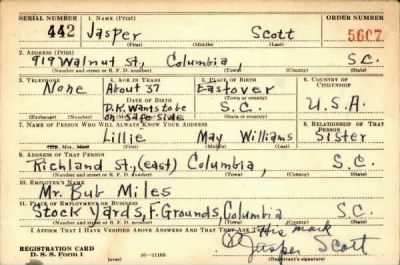 SERIAL NUMBER 1. NAME (Print) ORDER NUMBER
442 Jasper Scott 5607
(First) (Middle) (Last)
2. ADDRESS (Print)
919 Walnut St., Columbia, S.C.
(Number and street or R. F. D. number) (Town) (County) (State)
3. TELEPHONE 4. AGE IN YEARS 5. PLACE OF BIRTH 6. COUNTRY OF CITIZENSHIP
None About 37 Eastover
DATE OF BIRTH (Town or county)
D.K. Wants to be S.C. U.S.A.
on safe side
(Exchange) (Number) (State or country)
7. NAME OF PERSON WHO WILL ALWAYS KNOW YOUR ADDRESS 8. RELATIONSHIP OF THAT PERSON
Lillie May Williams Sister
(First) (Middle) (Last)
9. ADDRESS OF THAT PERSON
Richland St., (east) Columbia, S.C.
(Number and street or R. F. D. number) (Town) (County) (State)
10. EMPLOYER'S NAME
Mr. Bub Miles
11. PLACE OF EMPLOYMENT OR BUSINESS
Stock Yards, F. Grounds, Columbia S.C.
(Number and street or R. F. D. number) (Town) (County) (State)
I AFFIRM THAT I HAVE VERIFIED ABOVE ANSWERS AND THAT THEY ARE TRUE.
His mark
REGISTRATION CARD
D. S. S. Form 1 (X) Jasper Scott
(over)